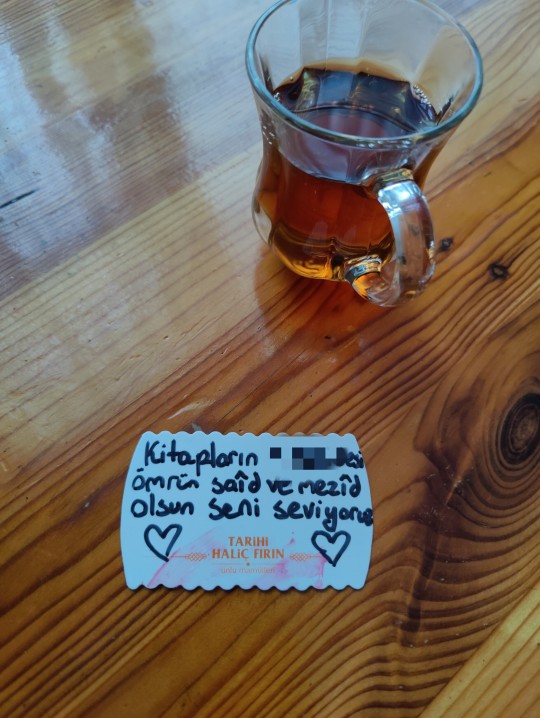 Kitapların
ömrün saîd ve mezîd
olsun seni seviyoruz
TARİHİ
HALİÇ FIRIN